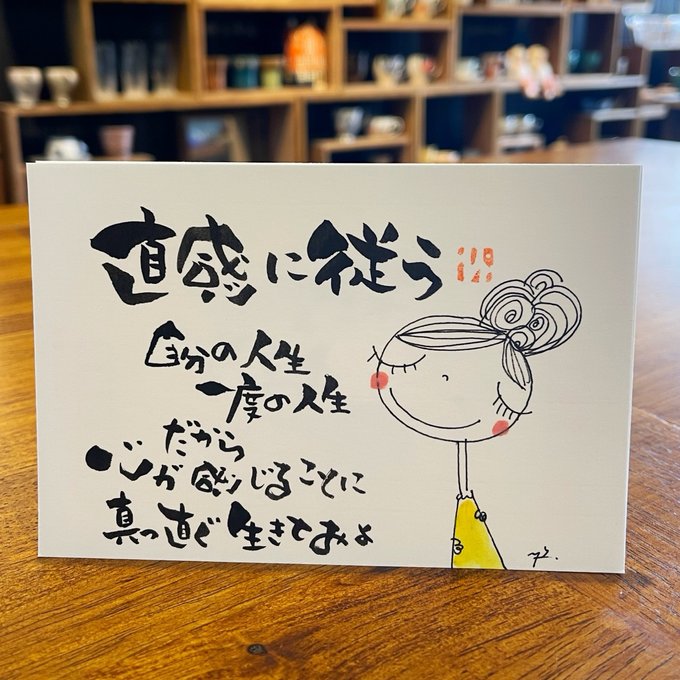 直感に従う
自分の人生
一度の人生
だから
心が感じることに
真っ直ぐ生きてみよ